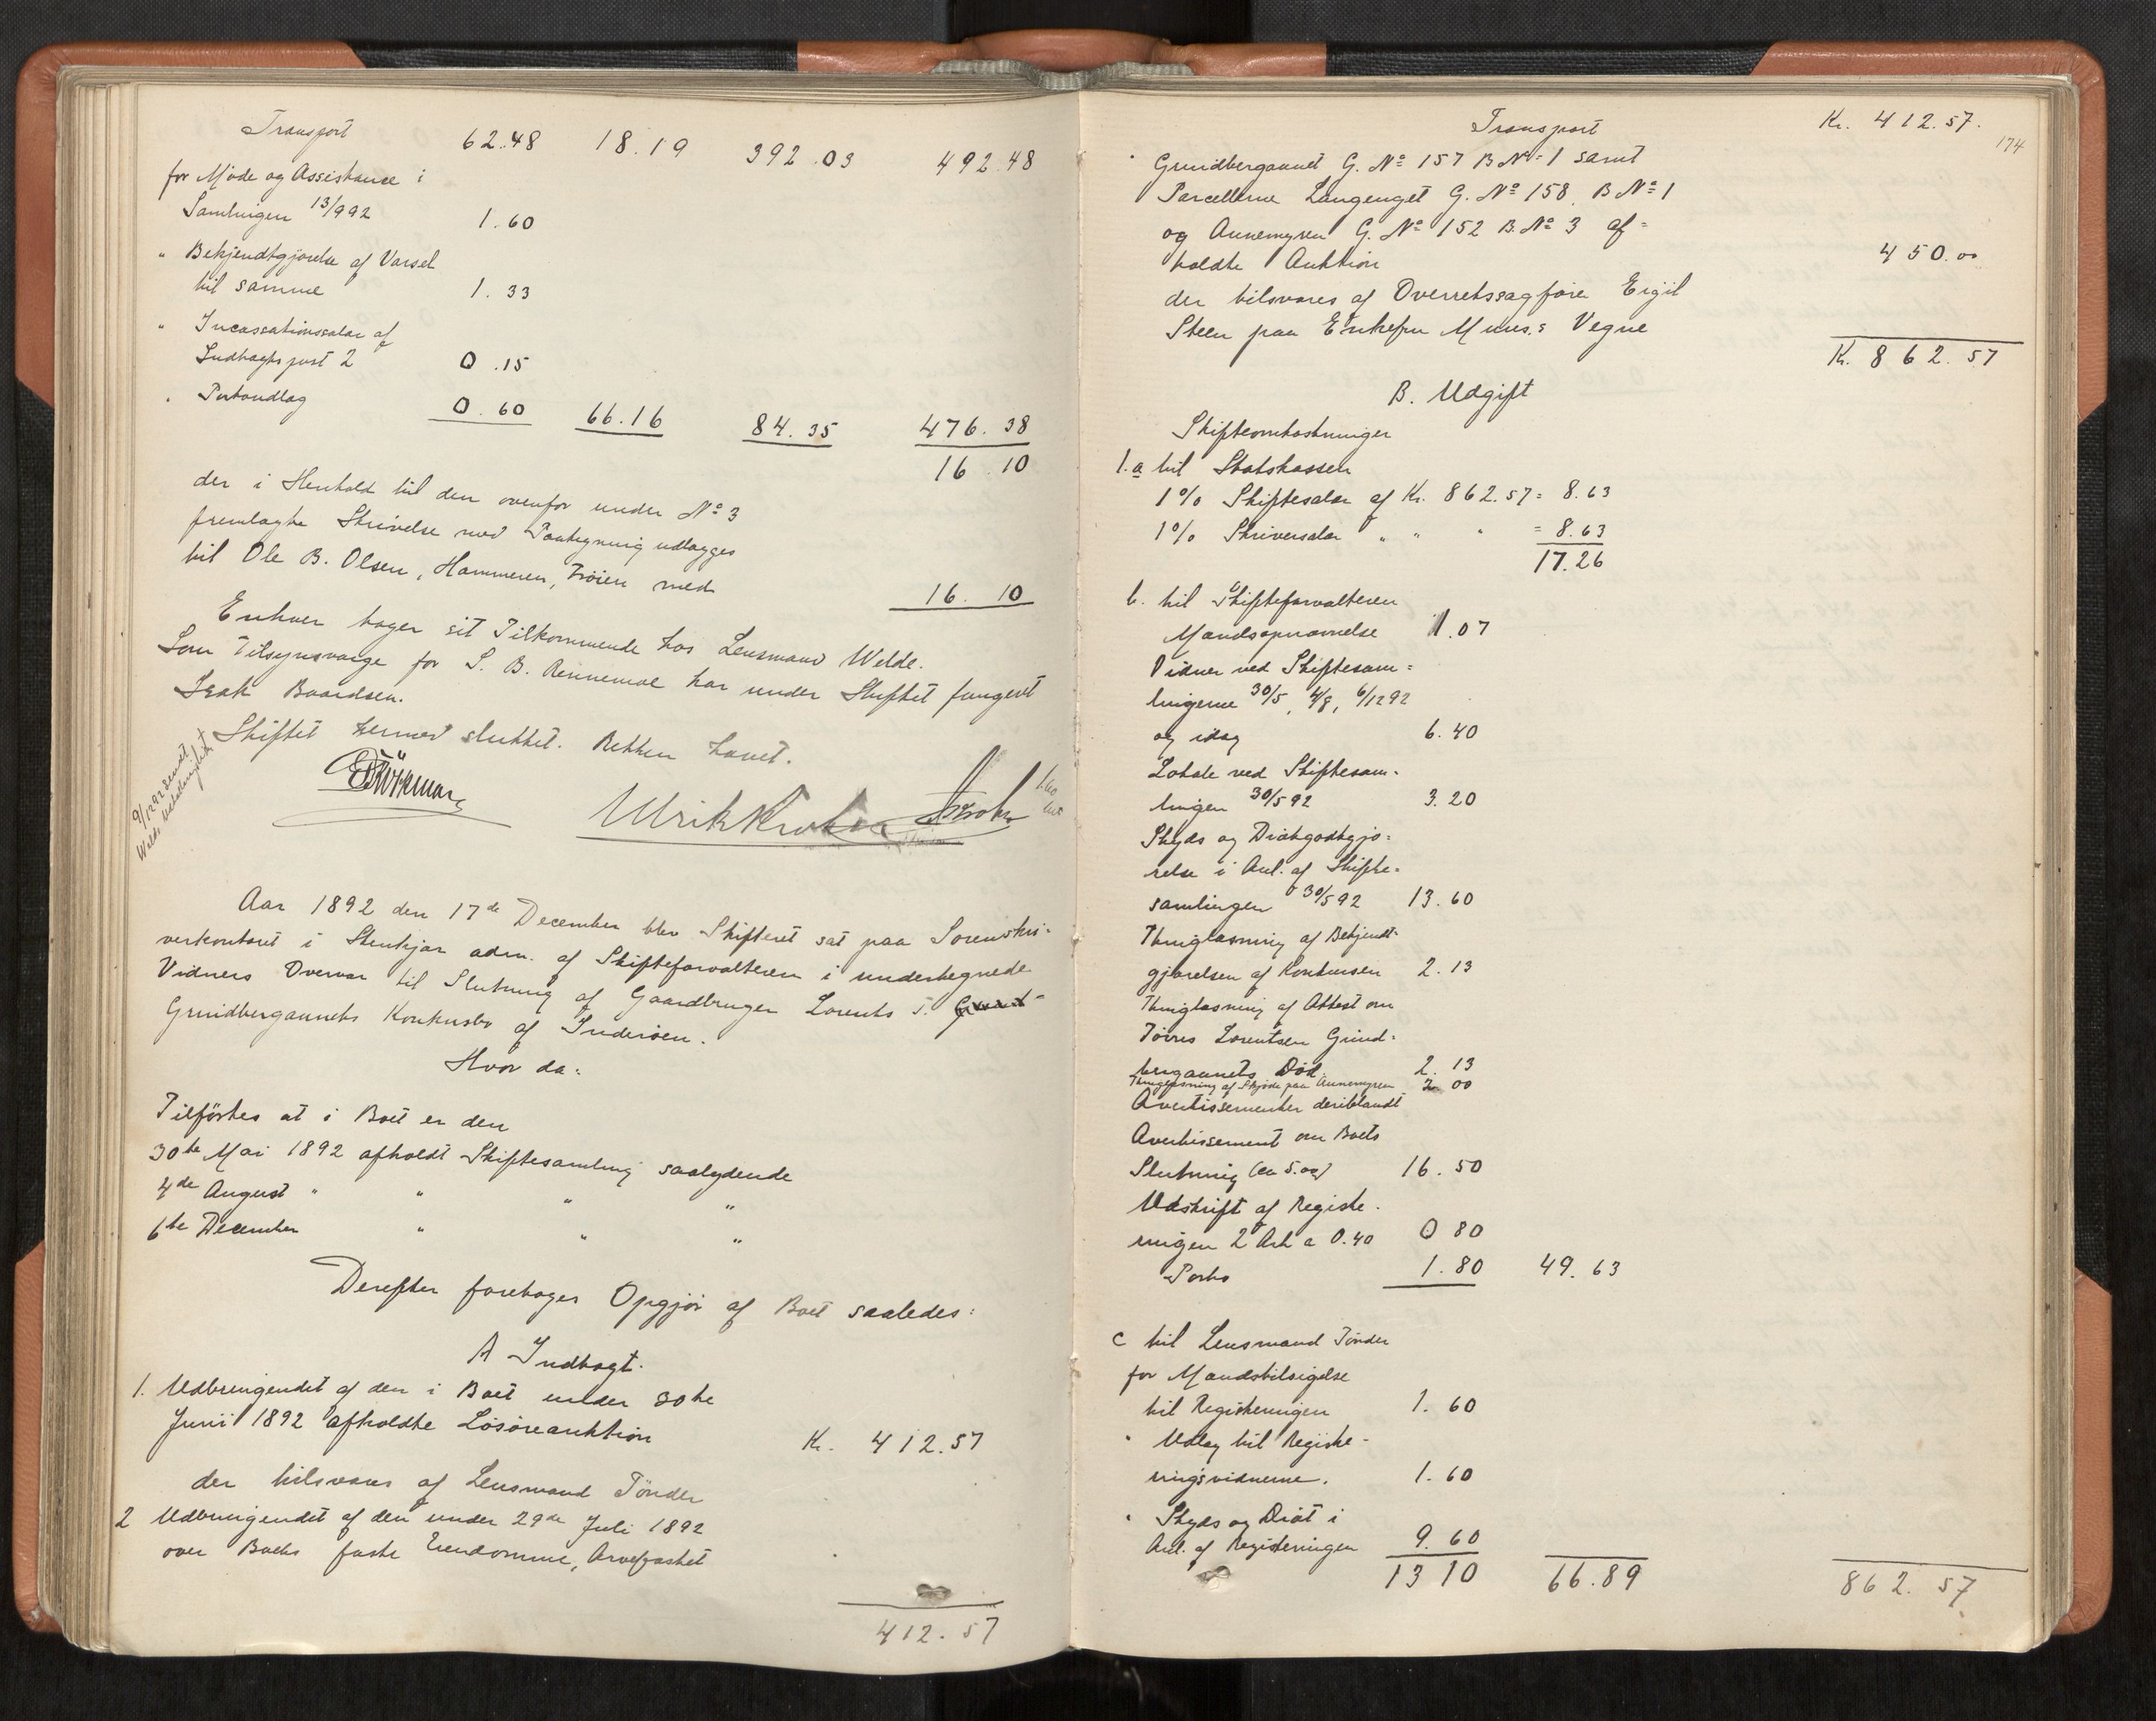 Transport 62.48 18.19 392.03 492.48
for Møde og Assistance i
Samlingen 13/992 1.60
" Bekjendtgjørelse af Varsel
til samme 1.33
" Incassationssalær af
Indtægtspost 2 0.15
" Portoudlæg 0.60 66.16 84.35 476.38
16.10
der i Henhold til den ovenfor under No 3
fremlagte Skrivelse med Paategning udlægges
til Ole B. Olsen, Hammeren, Frøien med 16.10
Enhver tager sit Tilkommende hos Lensmand Welde.
Som Tilsynsværge for S. B. Rennemoe har under Skiftet fungert
Isak Baardsen.
Skiftet hermed sluttet. Retten hævet.
9/1292 sendt
Welde
Ulrik Krohn
Aar 1892 den 17de December blev Skifteret sat paa Sorenskri-
verkontoret i Stenkjær adm. af Skifteforvalteren i undertegnede
Vidners Overvær til Slutning af Gaardbruger Lorents T.
Grundbergaunets Konkursbo af Inderøen.
Hvor da:
Tilførtes at i Boet er den
30te Mai 1892 afholdt Skiftesamling saalydende
4de August " " " "
6te December " " "
Derefter foretoges Opgjør af Boet saaledes:
A Indtægt.
1. Udbringendet af den i Boet under 30te
Juni 1892 afholdte Løsøreauktion Kr. 412.57
der tilsvares af Lensmand Tønder
2 Udbringendet af den under 29de Juli 1892
over Boets faste Eiendomme, Arvefæstet
412.57
Transport Kr. 412.57.
174
Grundbergaunet G. No 157 B No 1 samt
Parcellerne Langenget G. No 158, B No 1
og Aunemyren G. No 152 B. No 3 af-
holdte Auktion 450.00
der tilsvares af Overretssagfører Eigil
Steen paa Enkefru Muus.s Vegne
Kr. 862.57
B. Udgift
Skifteomkostninger
1.a til Statskassen
1% Skiftesalær af Kr. 862.57 = 8.63
1% Skriversalær " " " = 8.63
17.26
b. til Skifteforvalteren
Mandsopnævnelse 1.07
Vidner ved Skiftesam-
lingerne 30/5, 4/8, 6/1292
og idag 6.40
Lokale ved Skiftesam-
lingen 30/592 3.20
Skyds og Diætgodtgjø-
relse i Anl. af Skifte-
samlingen 30/592 13.60
Thinglæsning af Bekjendt-
gjørelsen af Konkursen 2.13
Thinglæsning af Attest om
Tørres Lorentsen Grund-
bergaunets Død 2.13
Thinglæsning af Skjøde paa Aunemyren 2 00
Avertissementer deriblandt
Avertissement om Boets
Slutning (ca 5.00) 16.50
Udskrift af Registe-
ringen 2 Ark a 0.40 0 80
Porto 1.80 49.63
c til Lensmand Tønder
for Mandstilsigelse
til Registeringen 1.60
" Udlæg til Registe-
ringsvidnerne. 1.60
" Skyds og Diæt i
Anl. af Registeringen 9.60
13 10 66.89 862.57